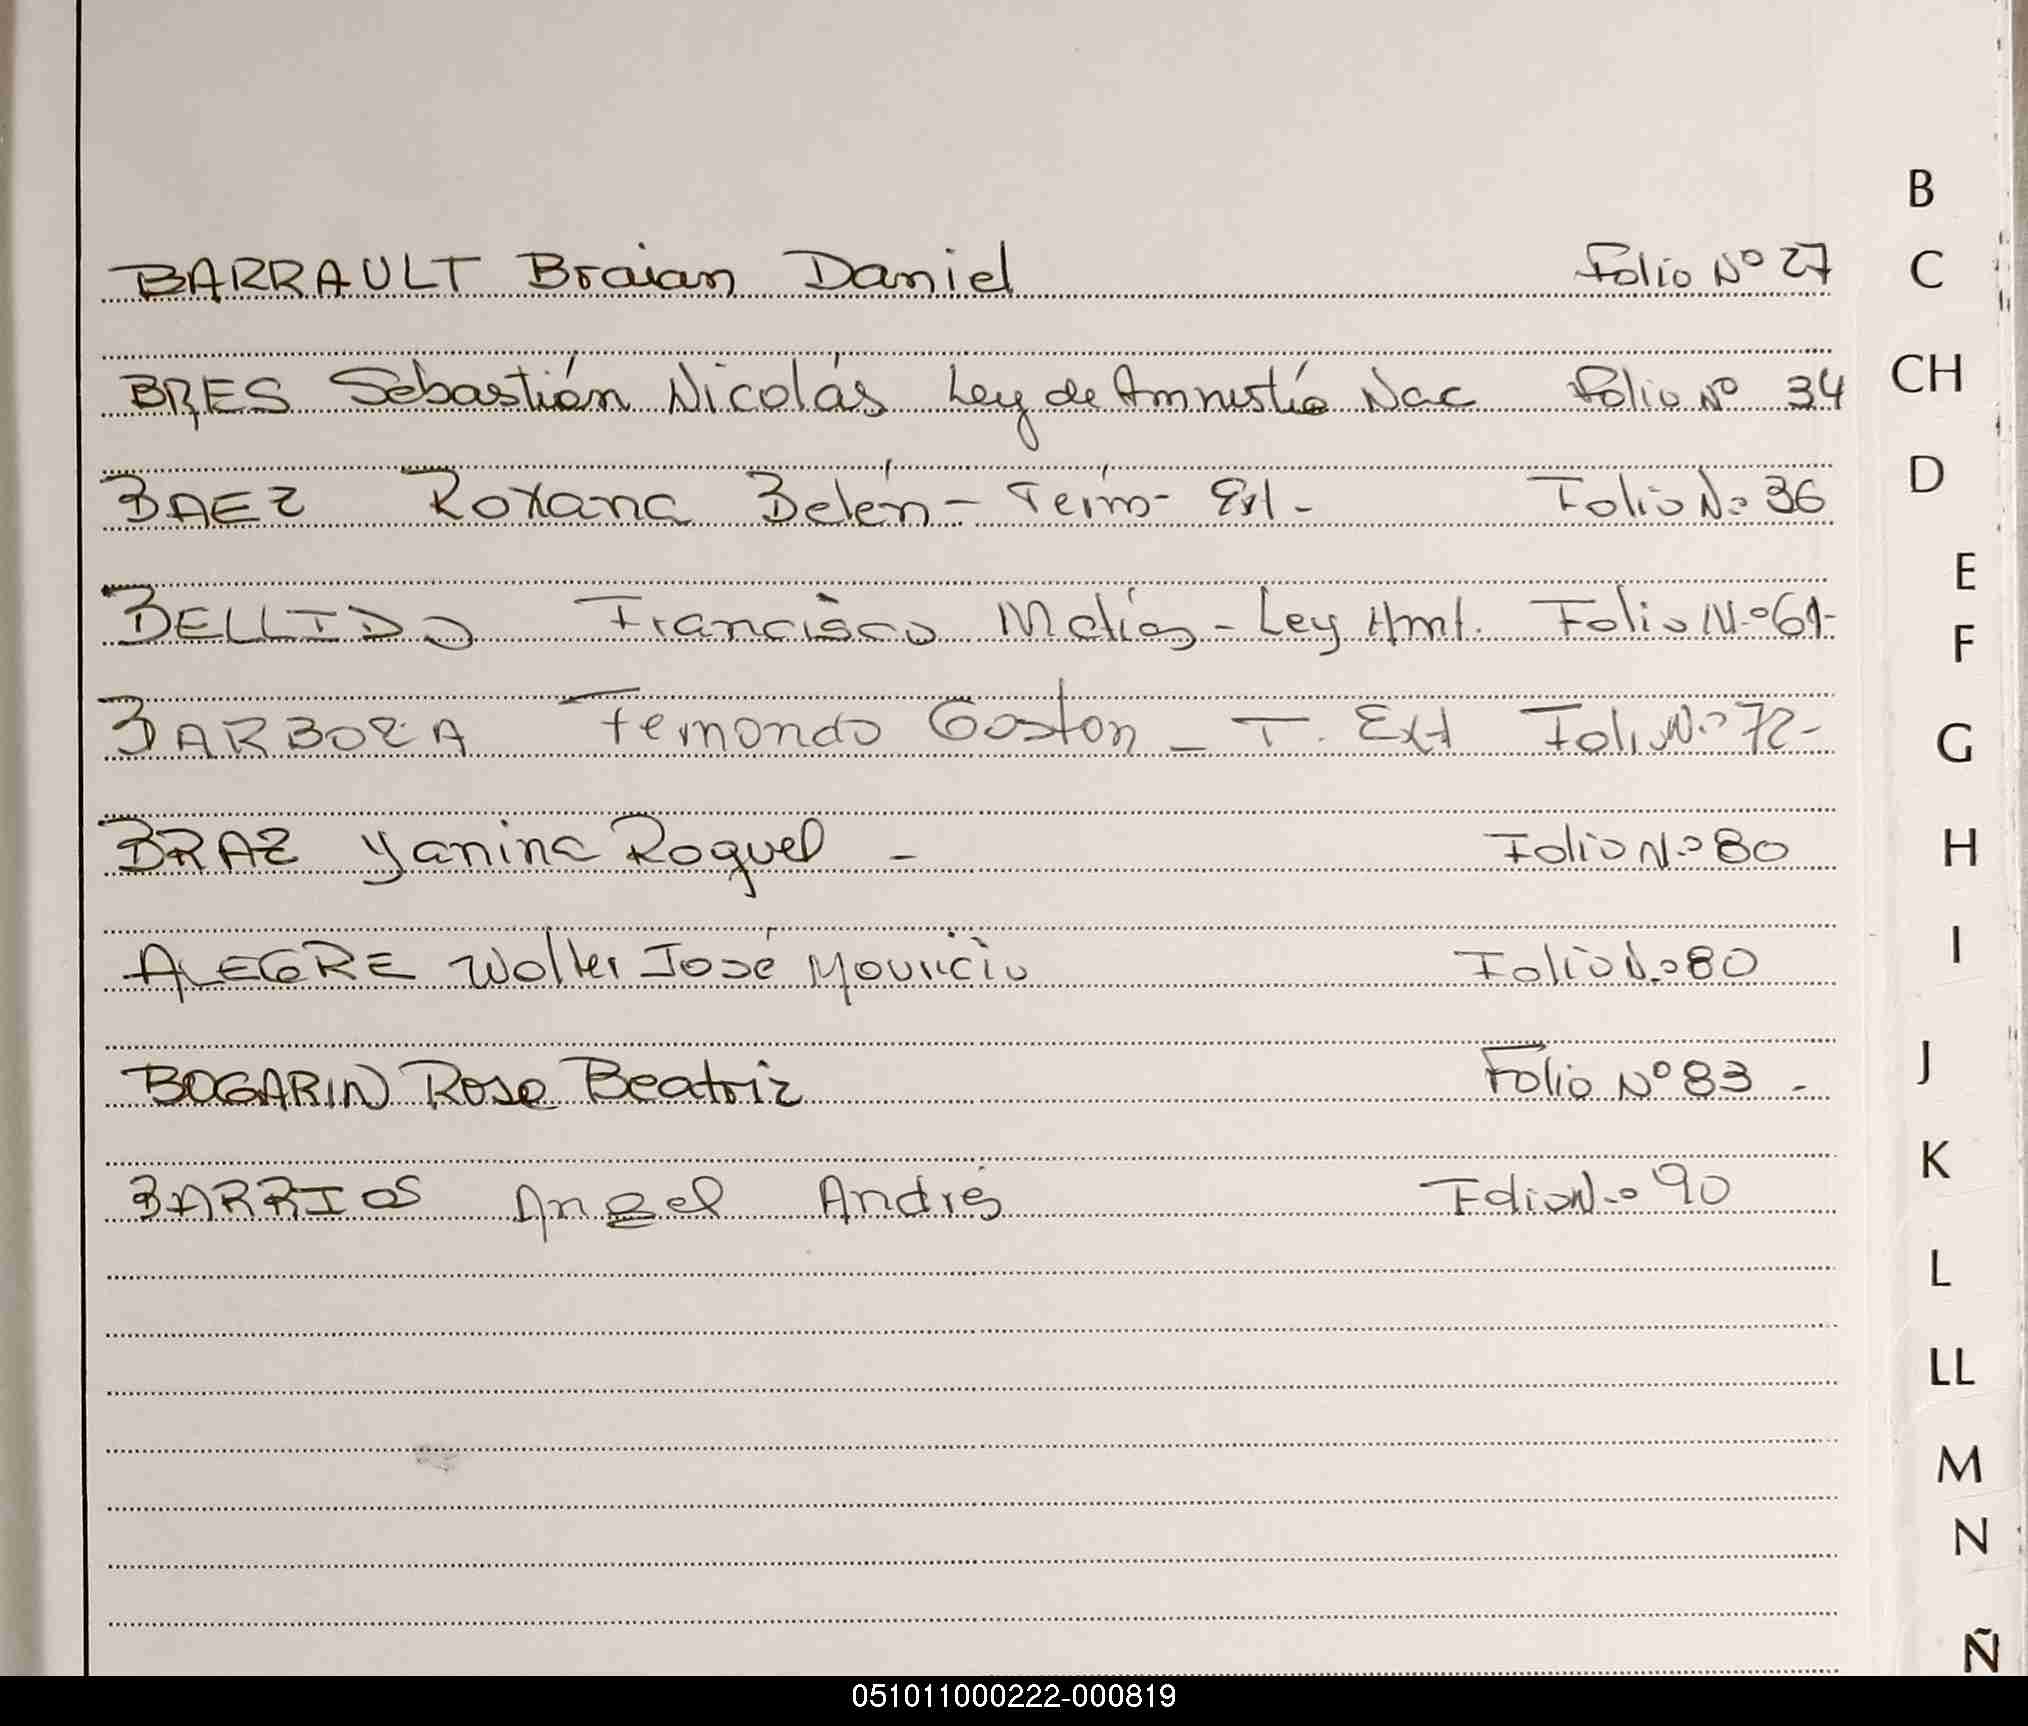 B
BARRAULT Braian Daniel Folio Nº 27
C
BRES Sebastián Nicolás Ley de Amnistía Nac Folio Nº 34
CH
D
BAEZ Roxana Belén - Térm - Ext - Folio N.º 36
E
BELLIDO Francisco Matías - Ley Amt. Folio N.º 61-
F
BARBOZA Fernando Gaston - T. Ext Folio N.º 72-
G
BRAZ Yanina Raquel - Folio N.º 80
H
ALEGRE Walter José Mauricio Folio N.º 80
I
BOGARIN Rosa Beatriz Folio Nº 83 -
J
K
BARRIOS Angel Andrés Folio N.º 90
L
LL
M
N
Ñ
051011000222-000819